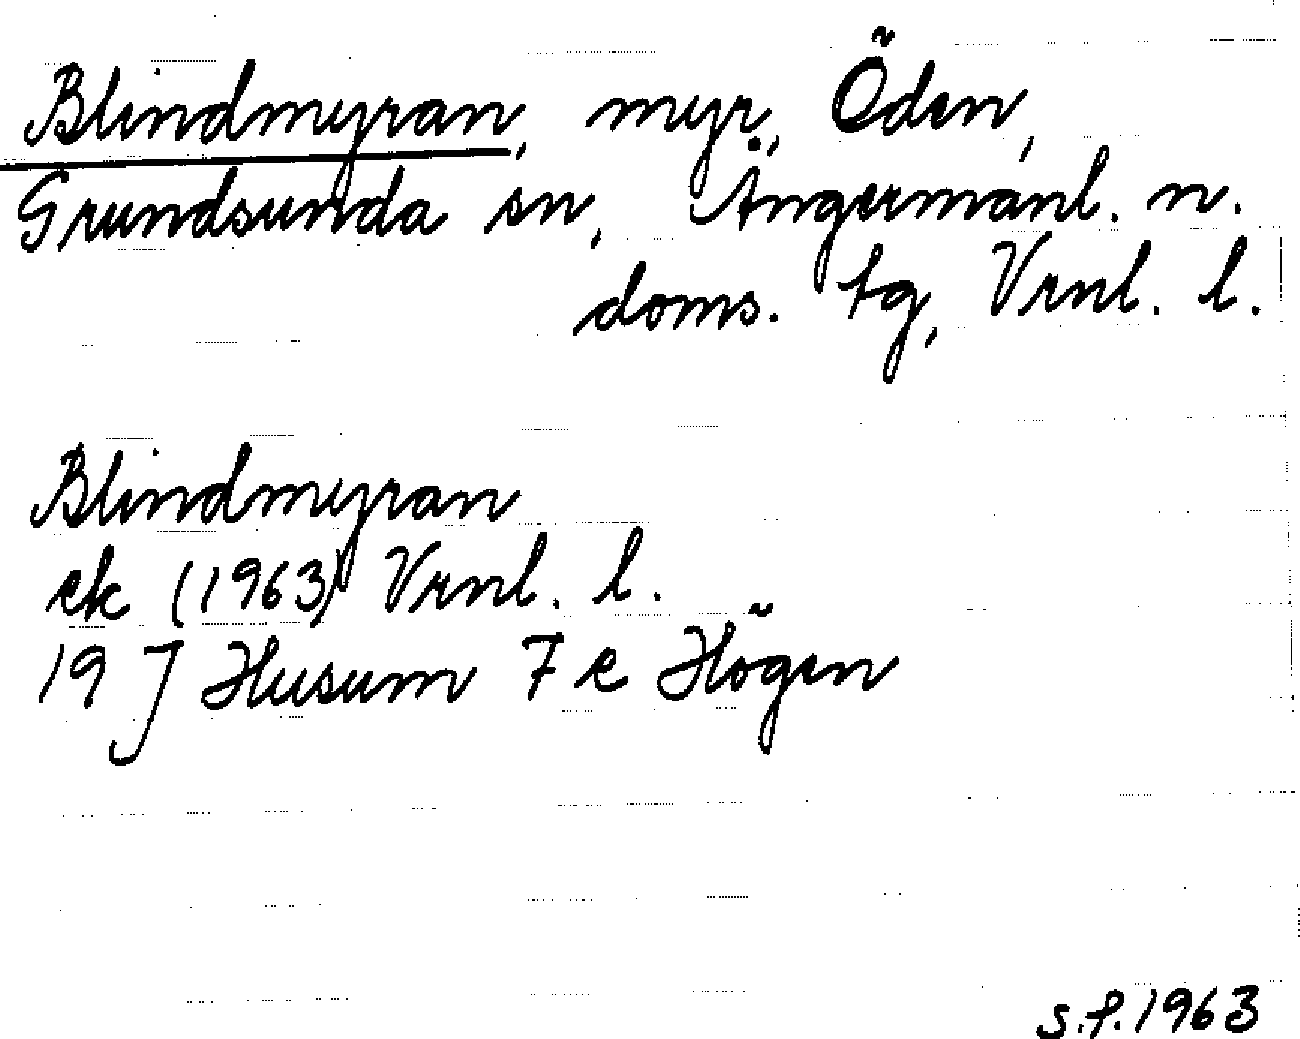 Blindmyran, myr, Öden,
Grundsunda sn, Ångermanl. n.
doms. tg, Vrnl. l.
Blindmyran
ek (1963) Vrnl. l.
19 J Husum 7 e Högen
s.f. 1963